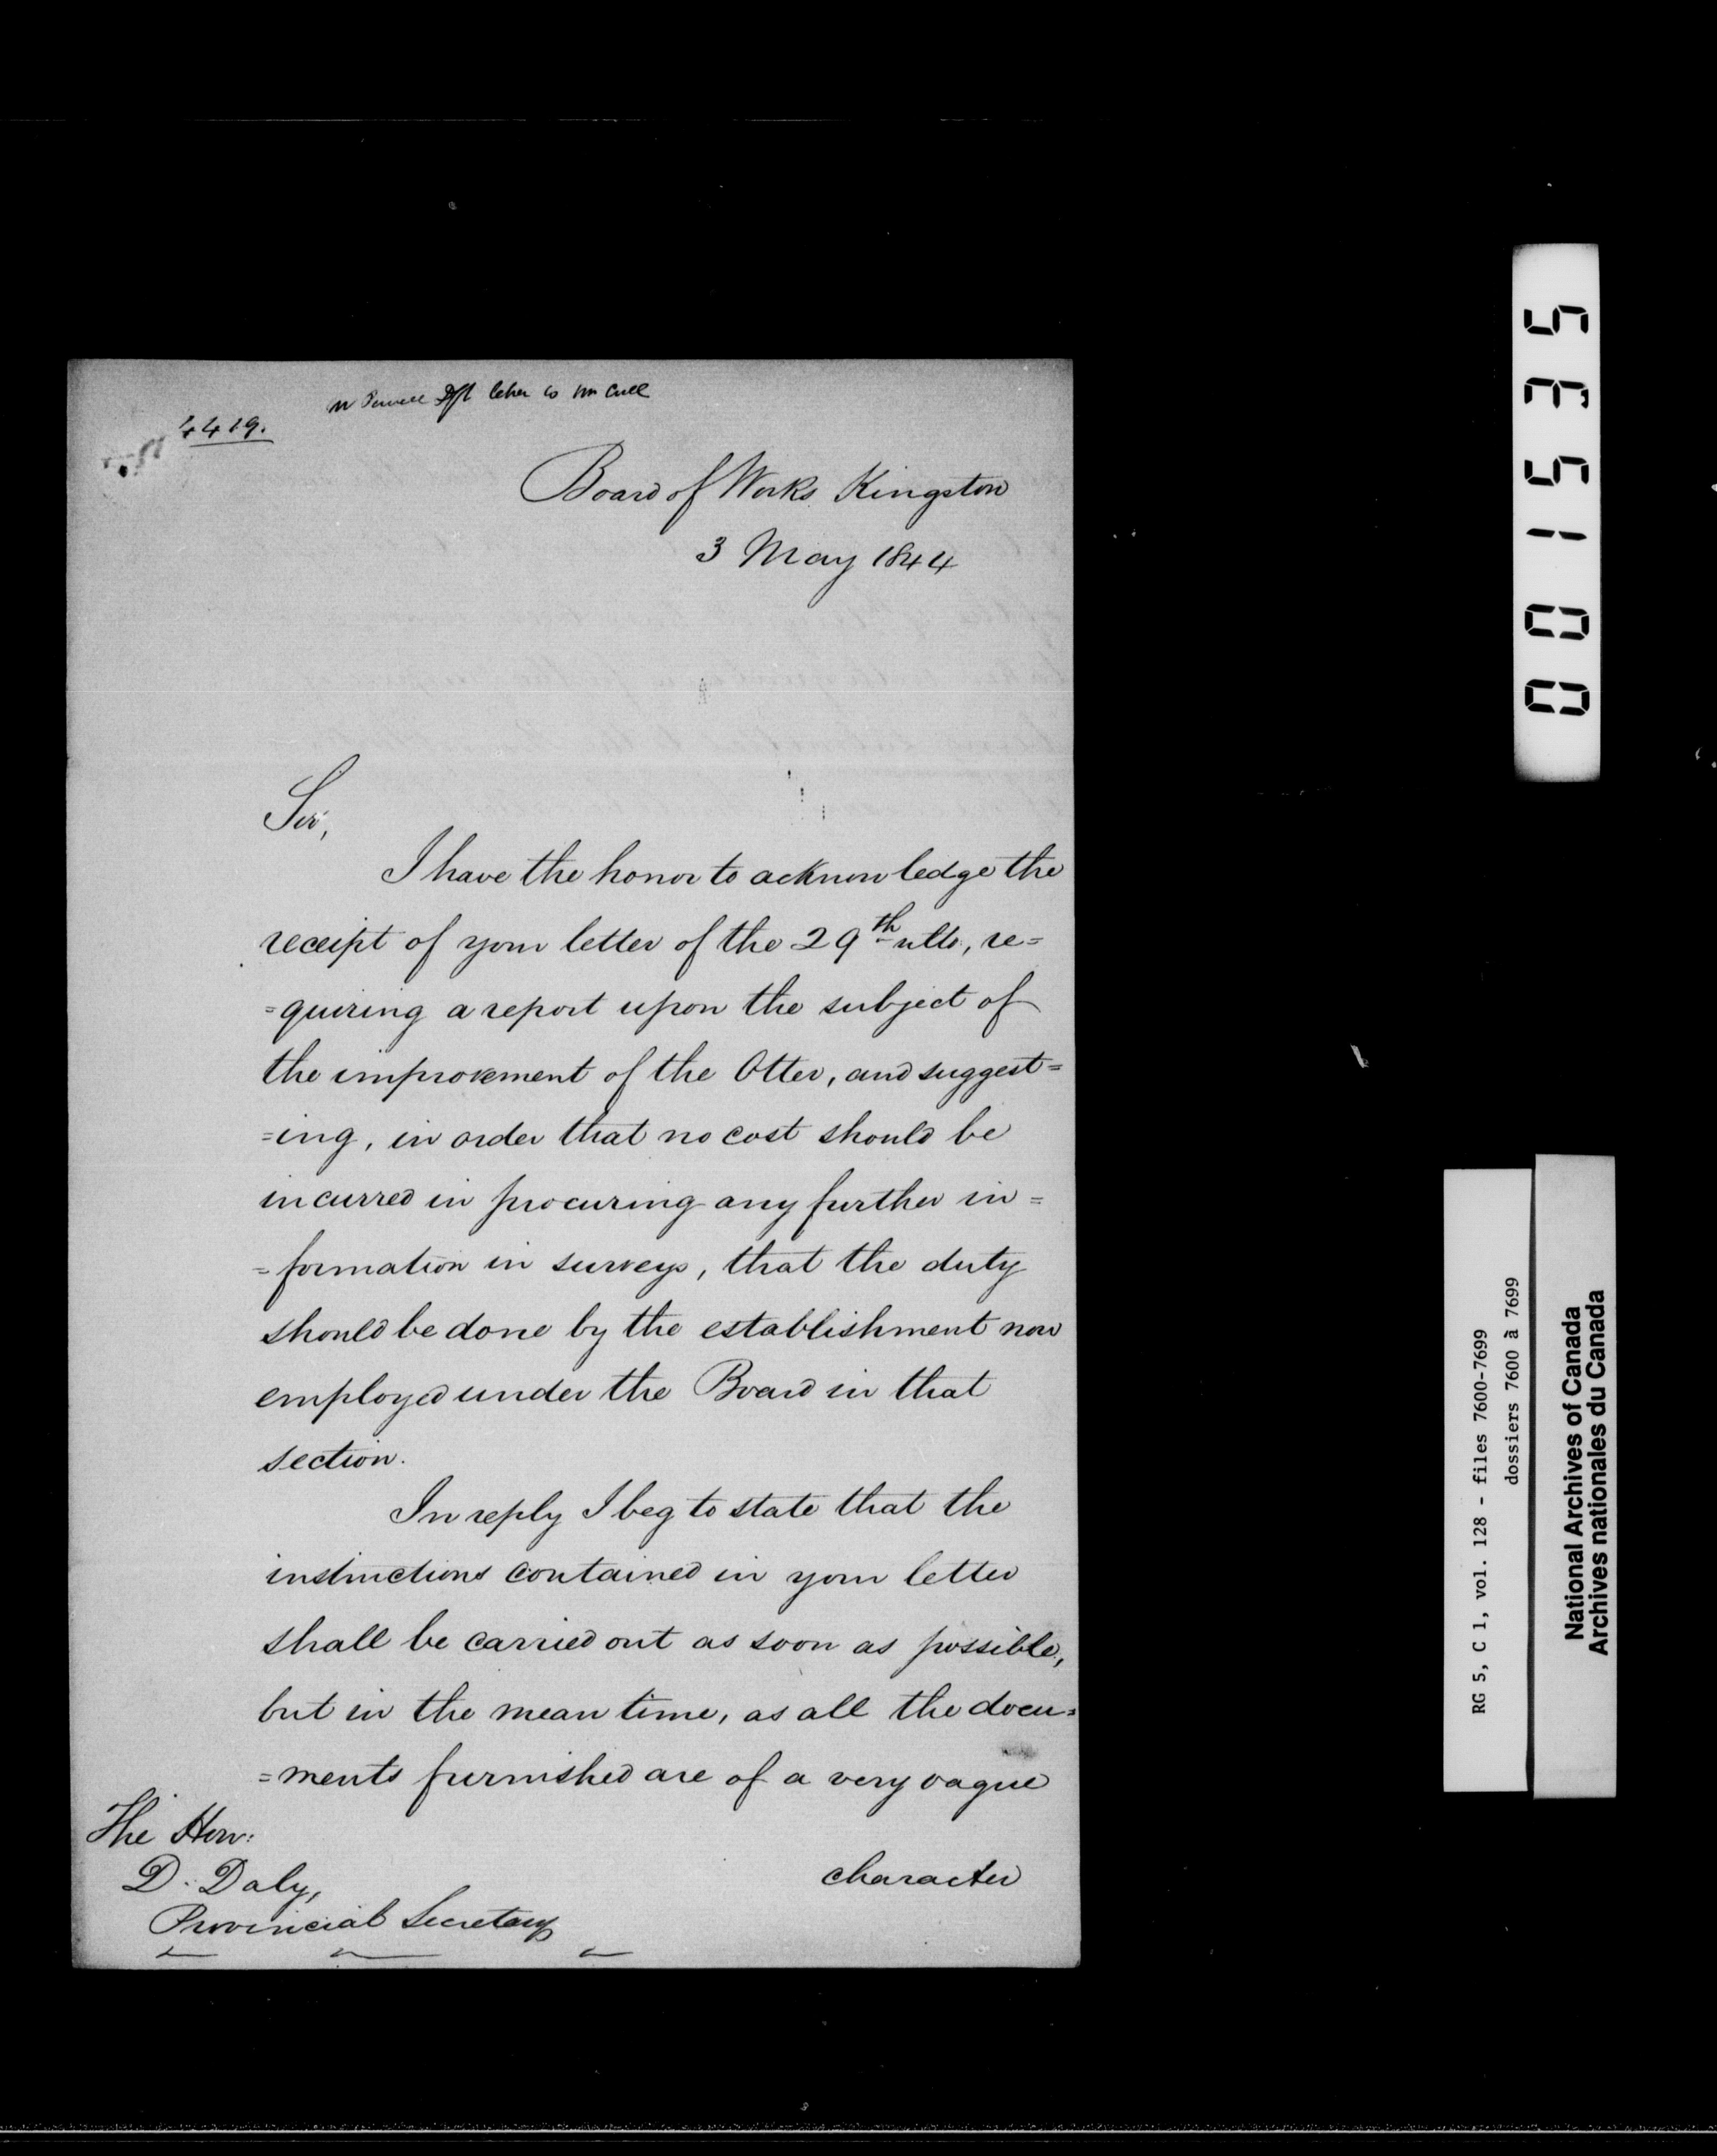 Mr Powell Dft letter to Mr Cull
4419.
Board of Works Kingston
3 May 1844
Sir,
I have the honor to acknowledge the
receipt of your letter of the 29th ulto, re=
=quiring a report upon the subject of
the improvement of the Otter, and suggest=
=ing, in order that no cost should be
incurred in procuring any further in=
=formation in surveys, that the duty
should be done by the establishment now
employed under the Board in that
section.
In reply I beg to state that the
instructions contained in your letter
shall be carried out as soon as possible,
but in the mean time, as all the docu=
=ments furnished are of a very vague
character
The Hon:
D. Daly,
Provincial Secretary
001535
RG 5, C 1, vol. 128 - files 7600-7699
dossiers 7600 à 7699
National Archives of Canada
Archives nationales du Canada